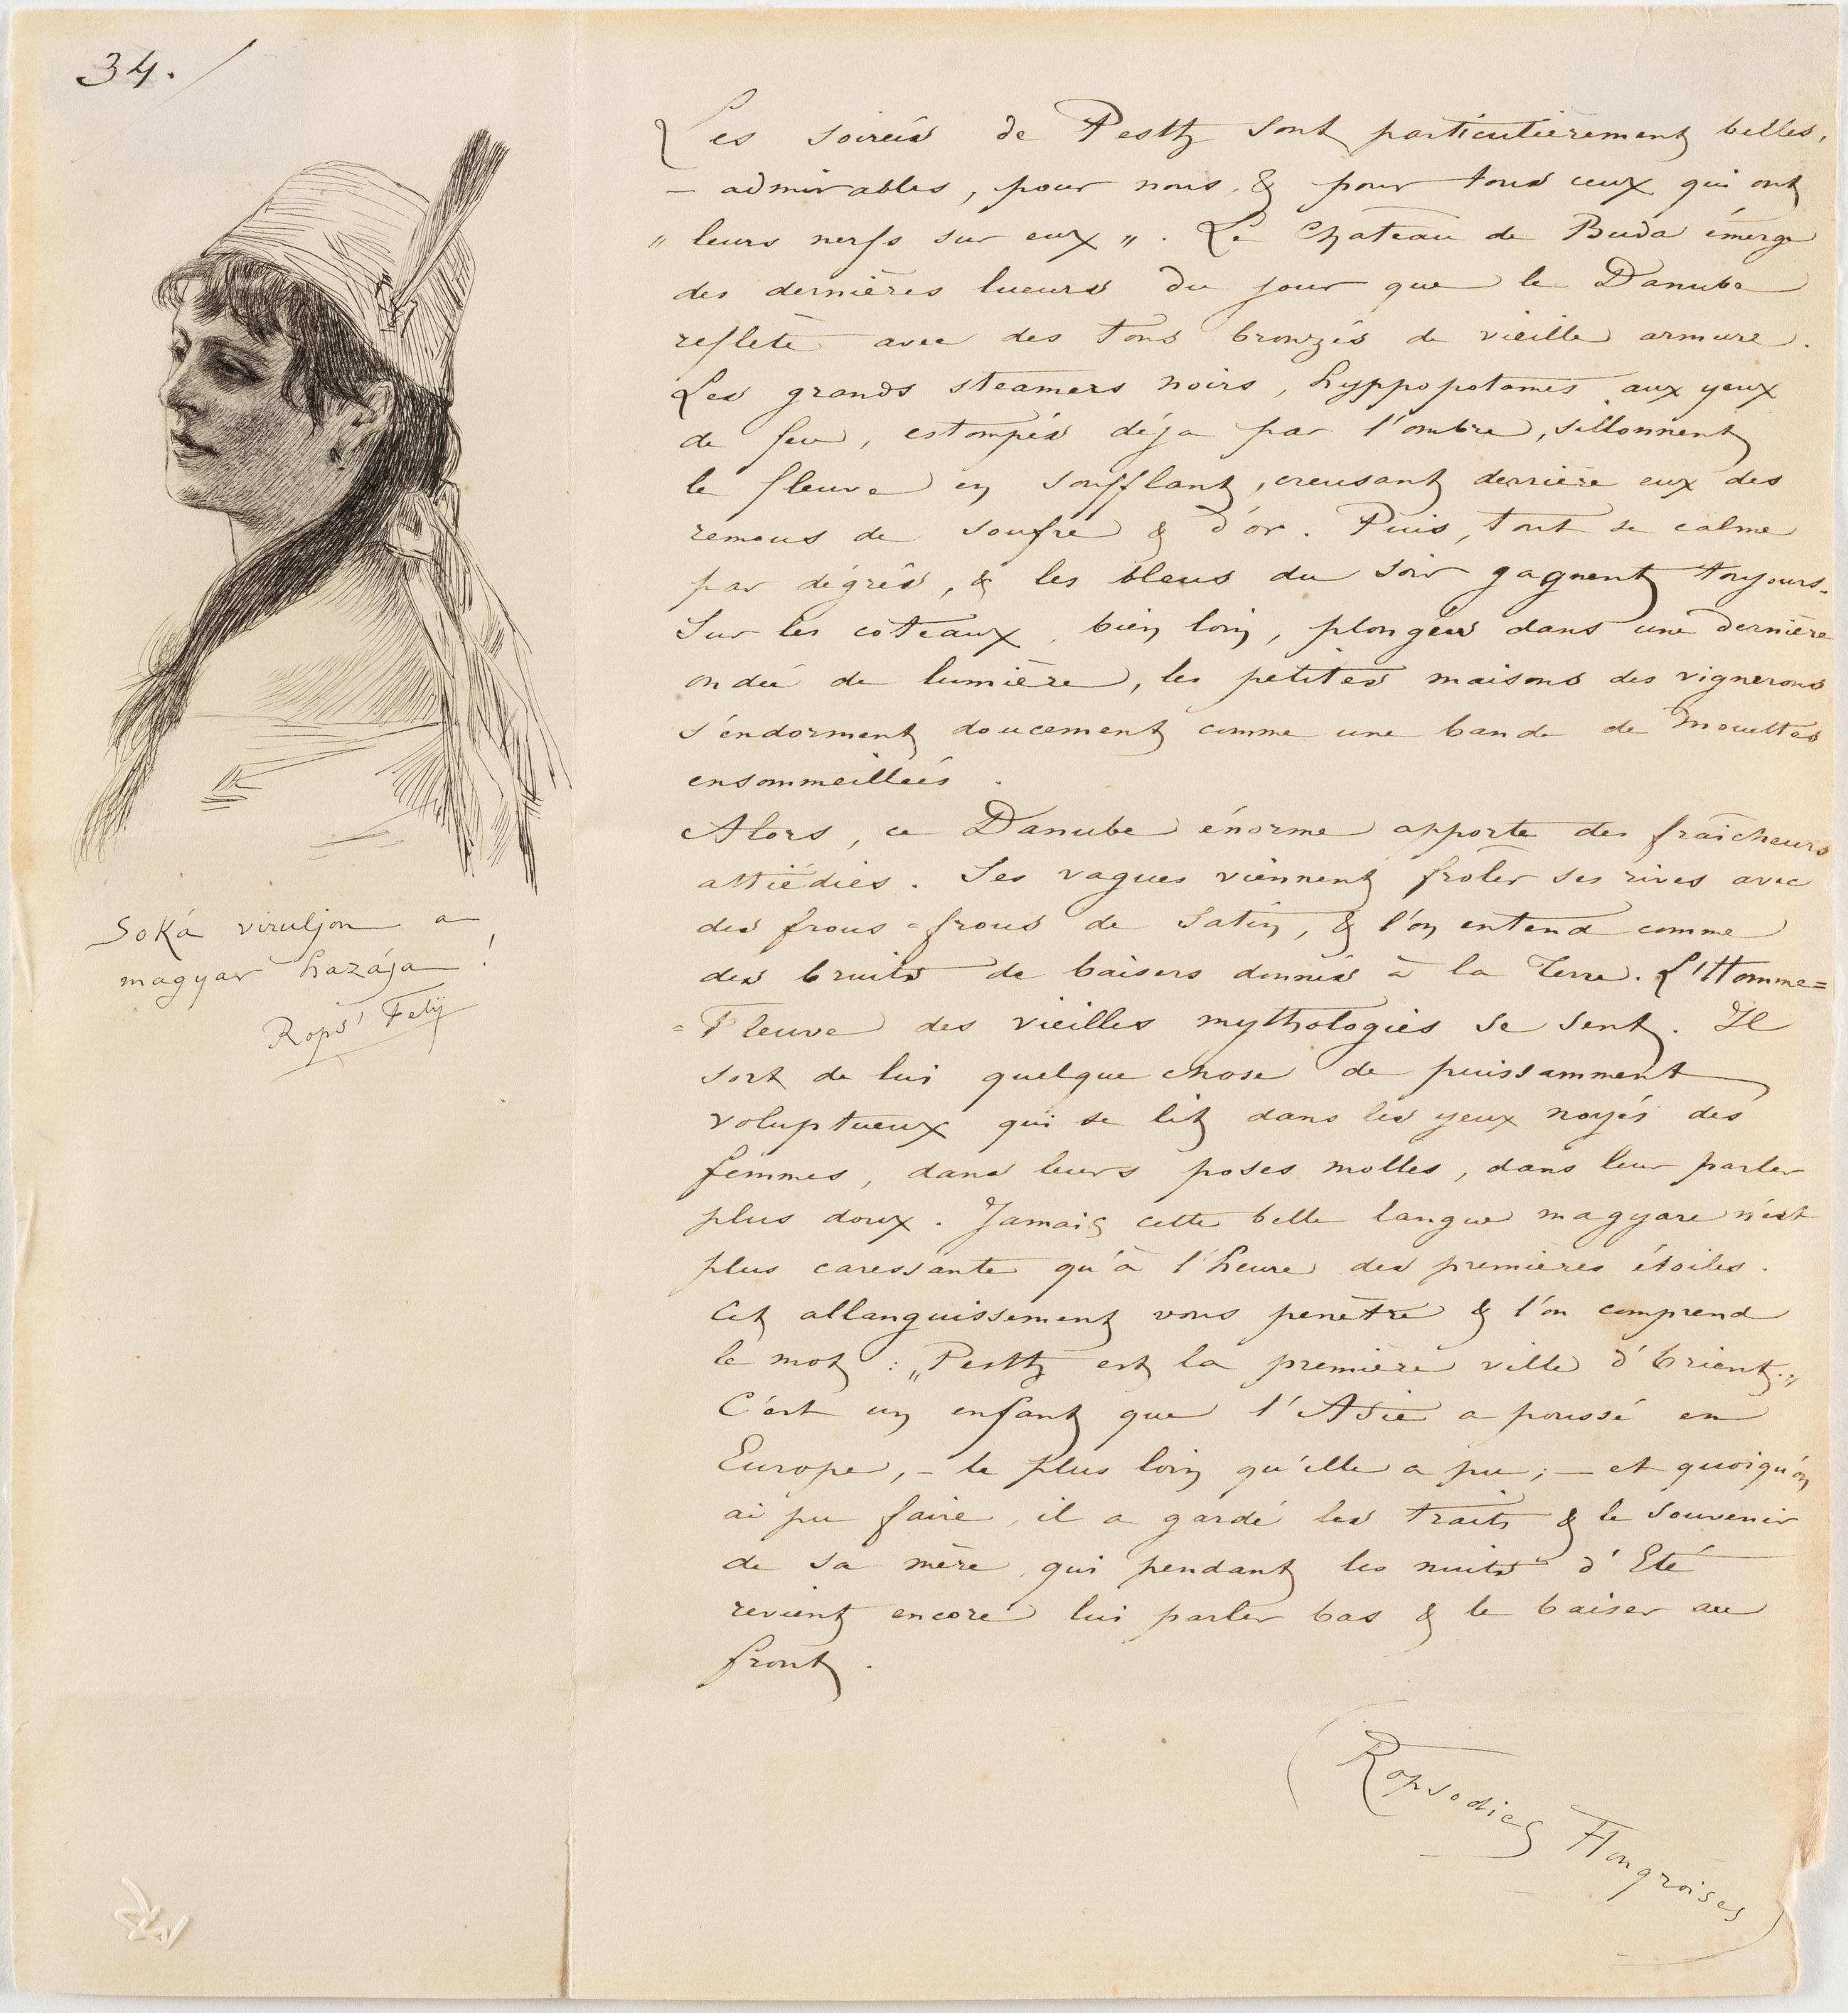 34.
Soká viruljon a
magyar hazája !
Rops' Felij
Les soireés de Pesth sont particulièrement belles,
— admirables, pour nous, & pour tous ceux qui ont
" leurs nerfs sur eux ". Le Chateau de Buda émerge
des dernières lueurs du jour que le Danube
reflète avec des tons bronzés de vieille armure.
Les grands steamers noirs, hyppopotames aux yeux
de feu, estompés déja par l'ombre, sillonnent
le fleuve en soufflant, creusant derrière eux des
remous de soufre & d'or. Puis, tout se calme
par dégrés, & les bleus du soir gagnent toujours.
Sur les coteaux, bien loin, plongeés dans une dernière
ondeé de lumière, les petites maisons des vignerons
s'endorment doucement comme une bande de mouettes
ensommeilleés.
Alors, ce Danube énorme apporte des fraîcheurs
attiédies. Ses vagues viennent frôler ses rives avec
des frous=frous de satin, & l'on entend comme
des bruits de baisers donnés à la Terre. L'Homme=
=Fleuve des vieilles mythologies se sent. Il
sort de lui quelque chose de puissamment
voluptueux qui se lit dans les yeux noyés des
femmes, dans leurs poses molles, dans leur parler
plus doux. Jamais cette belle langue magyare n'est
plus caressante qu'à l'heure des premières étoiles.
Cet allanguissement vous penètre & l'on comprend
le mot : „Pesth est la première ville d'Orient."
C'est un enfant que l'Asie a poussé en
Europe, – le plus loin qu'elle a pu; — et quoiqu'on
ai pu faire, il a gardé les traits & le souvenir
de sa mère, qui pendant les nuits d'Eté
revient encore lui parler bas & le baiser au
front.
(Rapsodies Hongroises)